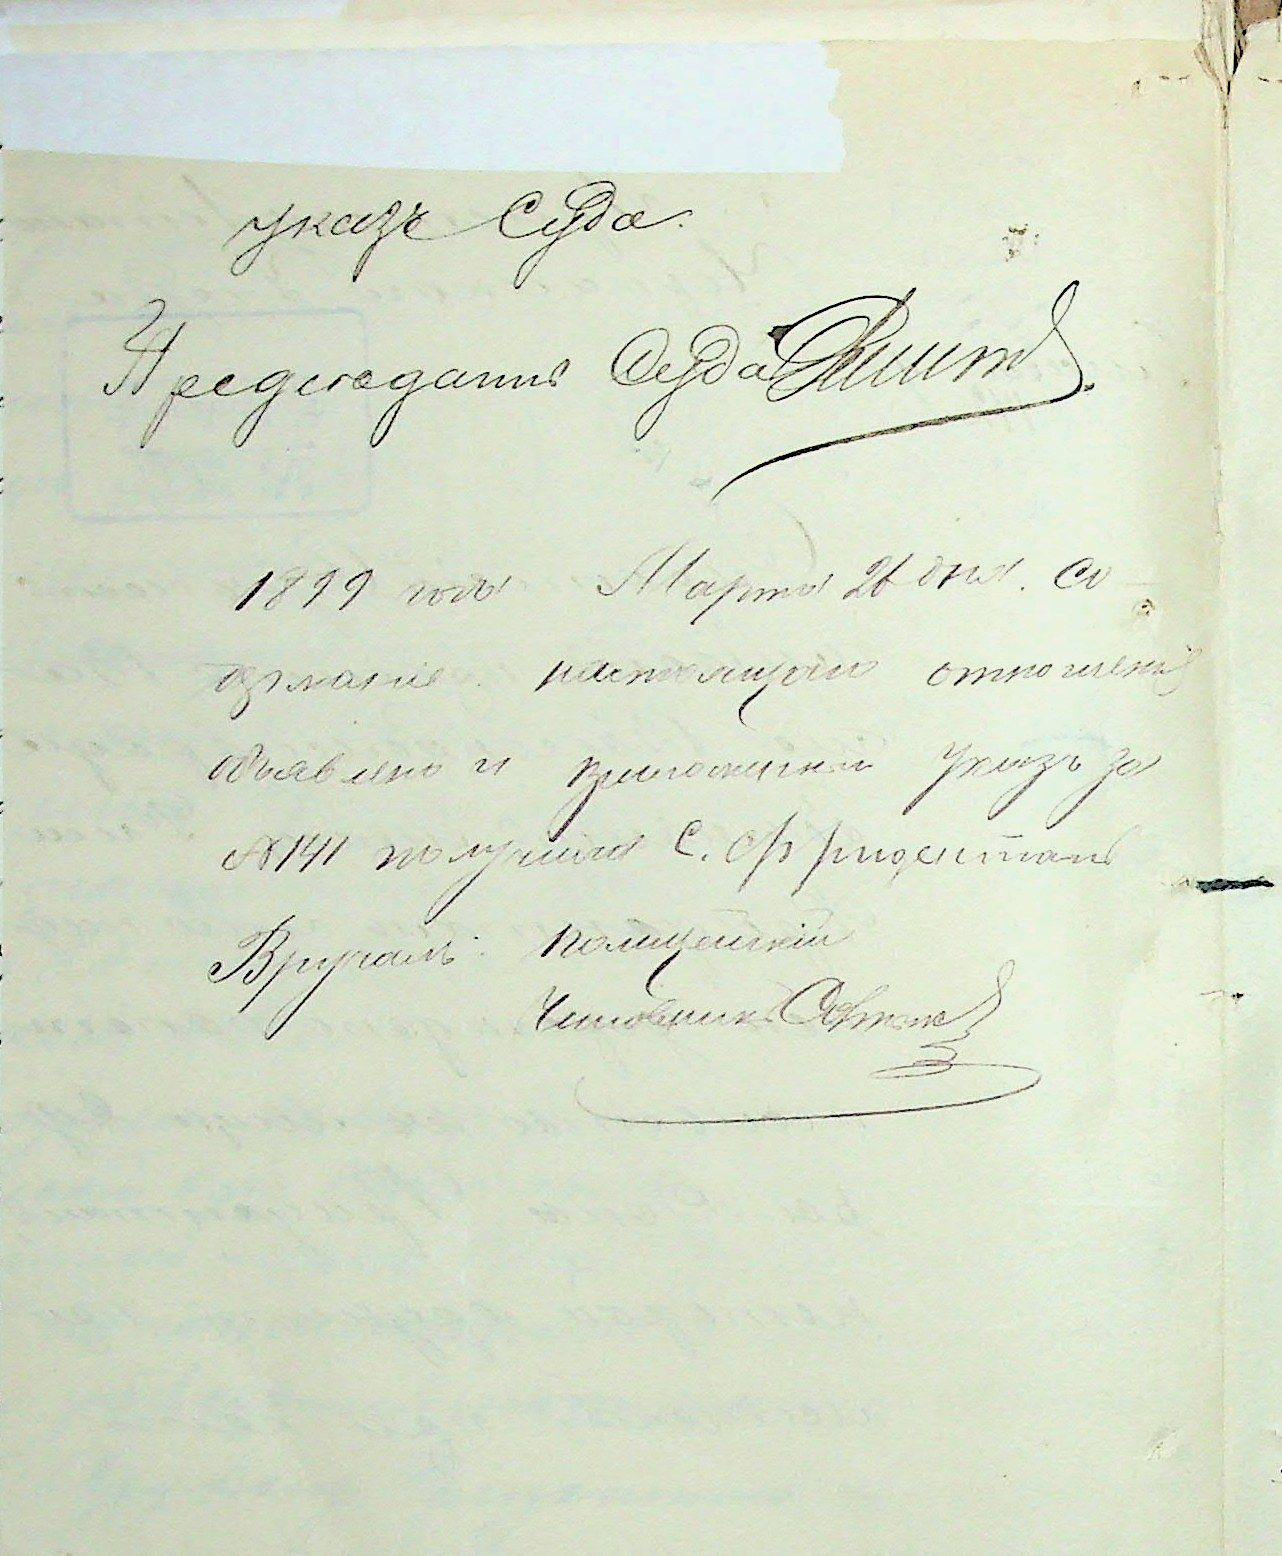 указъ Суда.
Предсѣдатель Суда
1899 года Марта 26 дня. Со
держаніе настоящаго отношенія
объявлено и приложенный указъ за
№ 141 получилъ С. Фриденталь
Вручалъ: полицейскій
Чиновникъ